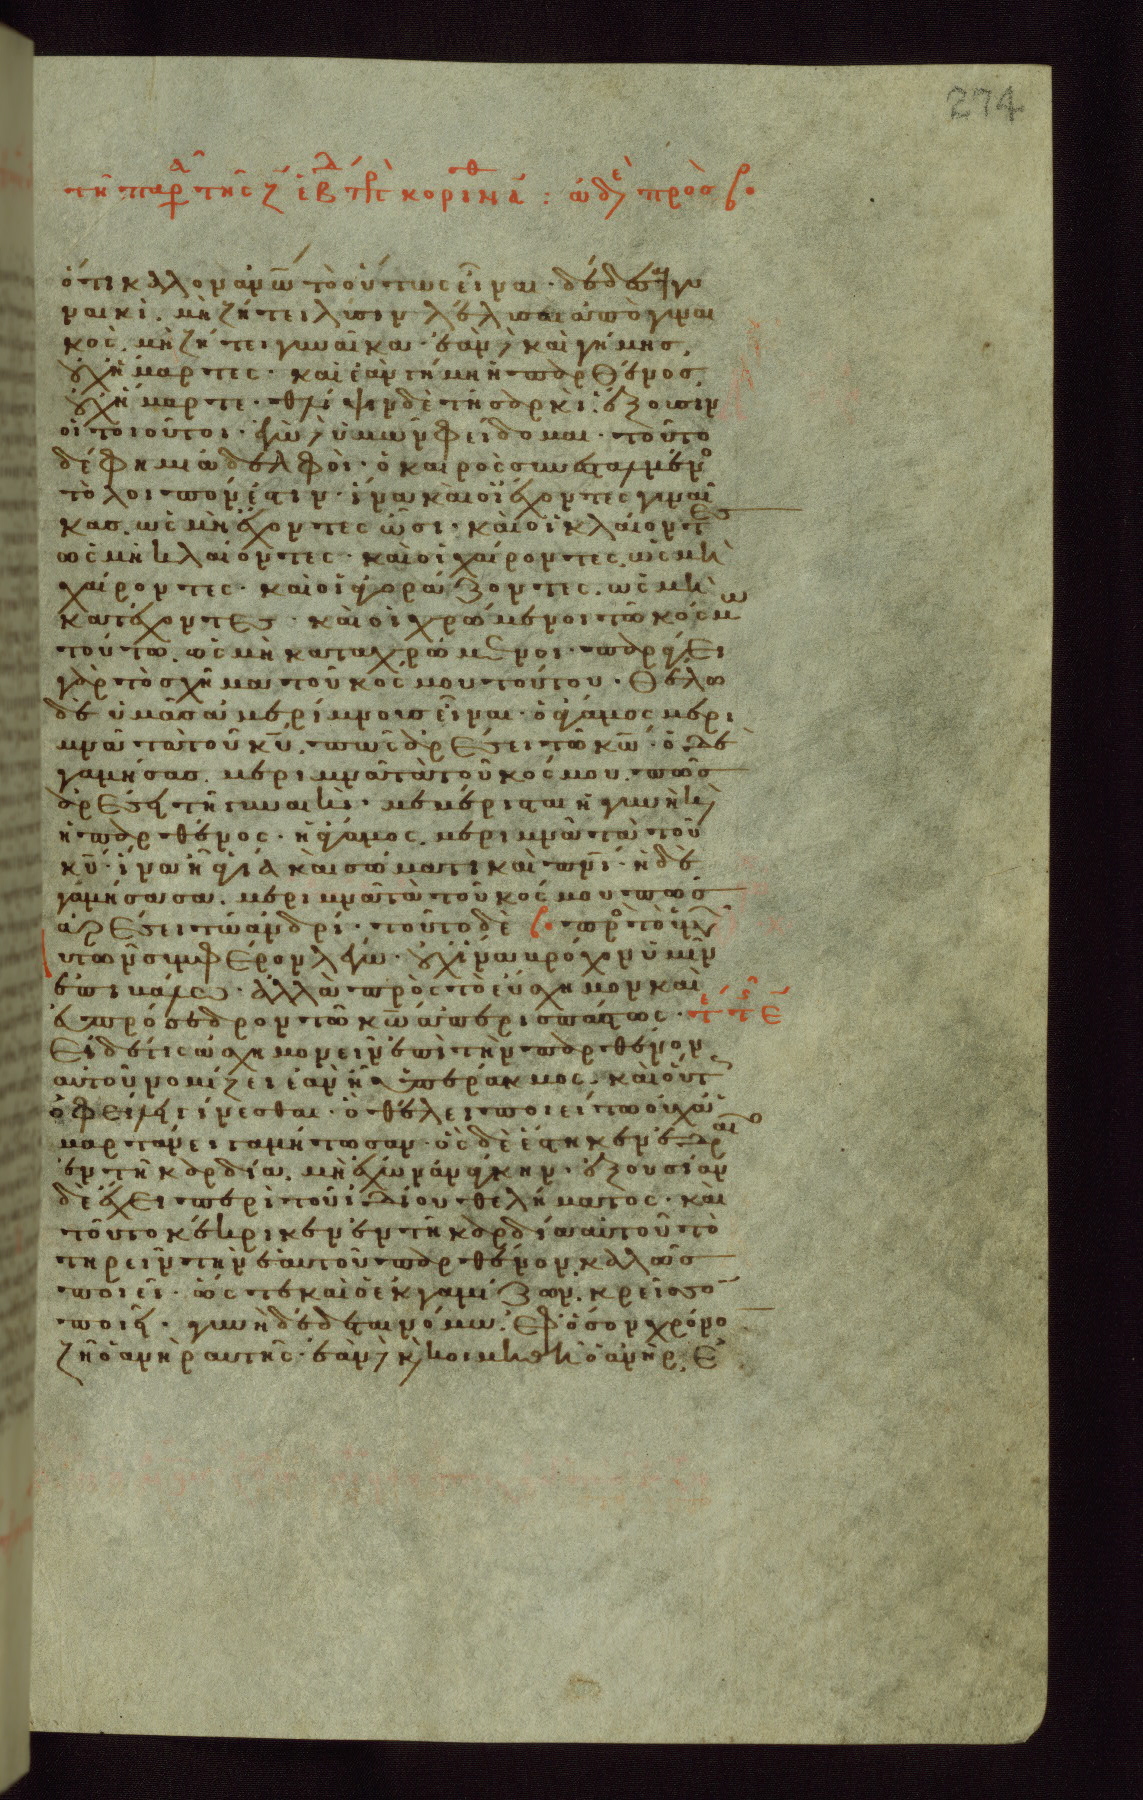 274
τῇ παρ τῆς ζ ἑβδ πρ κορινθ α : ὠδε πρὸσ
ὅτι καλὸν ἀνῶ τὸ οὕτως εἶναι · δέδεσαι γυ
ναικὶ · μὴ ζήτει λύσιν λέλυσαι ἀπὸ γυναι
κὸς · μὴ ζήτει γυναῖκα · ἐὰν δὲ καὶ γήμησ ·
οὐχ ἥμαρτες · καὶ ἐὰν γήμη ἡ παρθένοσ
οὐχ ἥμαρτε · θλίψιν δὲ τῇ σαρκὶ ἕξουσιν
οἱ τοιοῦτοι · ἐγὼ δὲ ὑμῶν φείδομαι · τοῦτο
δέ φημι ἀδελφοὶ · ὁ καιρὸς συνεσταλμένος
τὸ λοιπόν ἐστιν · ἵνα καὶ οἱ ἔχοντες γυναῖ
κασ · ὡς μὴ ἔχοντες ὦσι · καὶ οἱ κλαίοντες
ὡς μὴ κλαίοντες · καὶ οἱ χαίροντες ὡς μὴ
χαίροντες · καὶ οἱ ἀγοράζοντες · ὡς μὴ
κατέχοντες · καὶ οἱ χρώμενοι τῶ κόσμω
τούτω · ὡς μὴ καταχρώμενοι · παράγει
γὰρ τὸ σχῆμα τοῦ κόσμου τούτου · θέλω
δὲ ὑμᾶσ ἀμερίμνουσ εἶναι · ὁ ἄγαμος μερι
μνᾶ τὰ τοῦ κυ · πῶς ἀρέσει τῶ κῶ · ὁ δὲ
γαμήσασ · μεριμνᾶ τὰ τοῦ κόσμου · πῶσ
ἀρέσει τῇ γυναικὶ · μεμέρισται ἡ γυνὴ καὶ
ἡ παρθένος · ἡ ἄγαμος μεριμνᾶ τὰ τοῦ
κυ · ἵνα ἦ ἁγία καὶ σώματι καὶ πνι · ἡ δὲ
γαμήσασα · μεριμνᾶ τὰ τοῦ κόσμου πῶσ
ἀρέσει τῶ ἀνδρί · τοῦτο δὲ πρὸς τὸ ὑμῶν
αὐτῶν συμφέρον λέγω · οὐχ ἵνα βρόχον ὑμῖν
ἐπιβάλω · ἀλλὰ πρὸς τὸ εὔσχημον καὶ
εὐπρόσεδρον τῶ κῶ ἀπερισπάστως ·
Εἰ δέ τις ἀσχημονεῖν ἐπὶ τὴν παρθένον
αὐτοῦ νομίζει ἐὰν ἦ ὑπέρακμος · καὶ οὕτως
ὀφείλει γίνεσθαι · ὃ θέλει ποιείτω οὐχ ἁ
μαρτάνει γαμείτωσαν · ὃς δὲ ἕστηκεν ἑδραῖος
ἐν τῇ καρδία · μὴ ἔχων ἀνάγκην · ἐξουσίαν
δὲ ἔχει περὶ τοῦ ἰδίου θελήματος · καὶ
τοῦτο κέκρικεν ἐν τῇ καρδία αὐτοῦ τὸ
τηρεῖν τὴν ἑαυτοῦ παρθένον καλῶσ
ποιεῖ · ὥστε καὶ ὁ ἐκγαμίζων κρεῖσσον
ποιεῖ · γυνὴ δέδεται νόμω · ἐφ ὅσον χρόνον
ζῆ ὁ ἀνὴρ αὐτῆς · ἐὰν δὲ κοιμηθῆ ὁ ἀνὴρ · ἐ